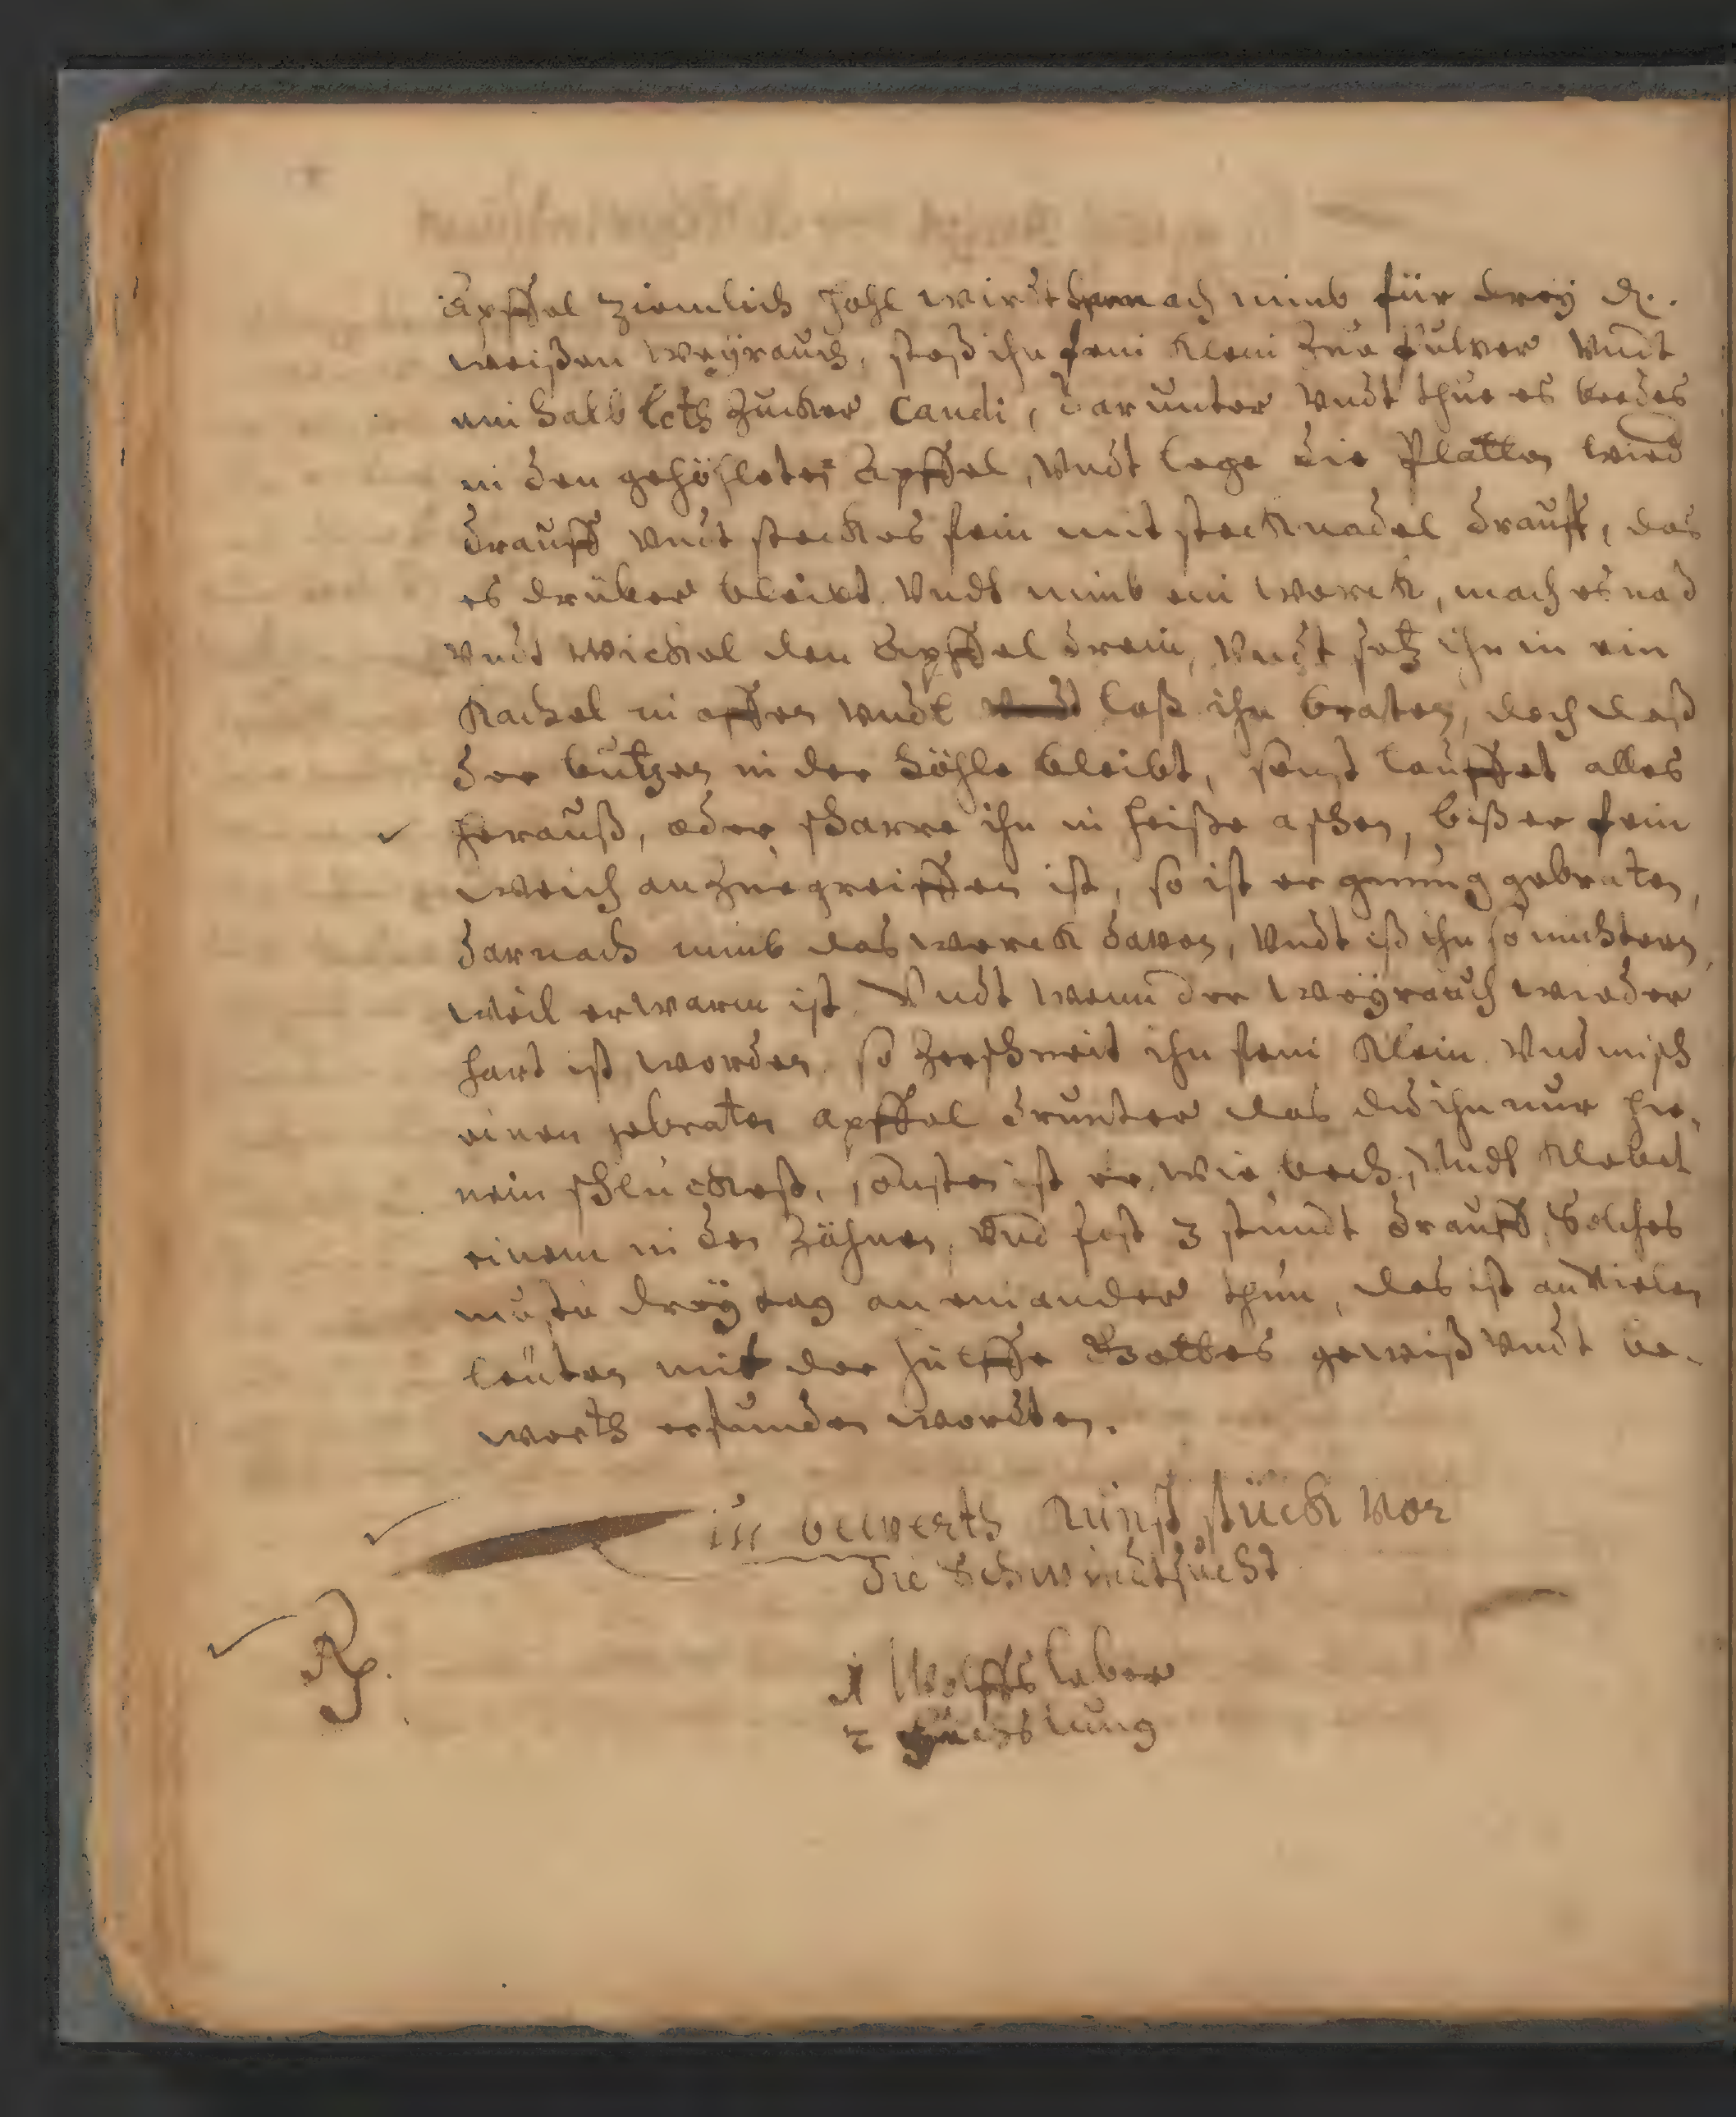 Apffel ziemlich hohl wirdt hernach nimb für drey ₰.
weißen Weyrauch, stoß ihn fein klein zue pulver Vndt
ein halb loth Zucker Candi, darunter Vndt thue es beedes
in den gehöhleten Apffel, Vndt lege die Platten wied
drauff Vndt steck es fein mit stecknadel drauff, das
es drüber bleibt Vndt nimb ein werck, mach es naß
Vndt wickel den Apffel drein, Vndt setz ihn in ein
Kachel in offen Vndt laß ihn braten, doch daß
der butzen in der höhle bleibt, sonst lauffet alles
herauß, oder scharre ihn in heiße aschen, biß er fein
weich anzuegreiffen ist, so ist er genung gebraten,
darnach nimb das werck davon, Vndt iß ihn so nuchtern,
weil er warm ist. Vndt wenn der Weyrauch wieder
hart ist worden, so zerschneit ihn fein klein Vnd misch
einen gebraten apffel drunter das du ihn nur hie-
nein schluckest, sonsten ist er wie bech, Vndt klebet
einem in den Zähnen, Vnd fast 3 stundt drauff, Solches
mustu drey tag an einander thun, das ist an Vielen
leuten mit der hülffe Gottes gewiß Vndt be-
werth erfunden wordten.
in bewerth Kunst stück Vor
die Schwindtsucht
Rp.
1 Wolffs leber
2 Fuchs lung